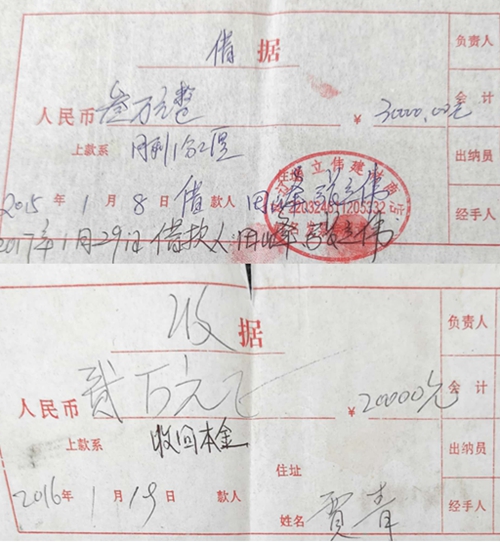 借据
负责人
人民币 叁万元整 ¥ 30000.00元
会计
上款系 月利1分2厘
出纳员
立伟建
2015年1月8日 借款人 田峰
经手人
2017年1月29日 借款人 田峰 张立伟
收据
负责人
人民币 贰万元正 ¥ 20000元
会计
上款系 收回本金
出纳员
住址
2016年1月19日 款人
经手人
姓名 贾青